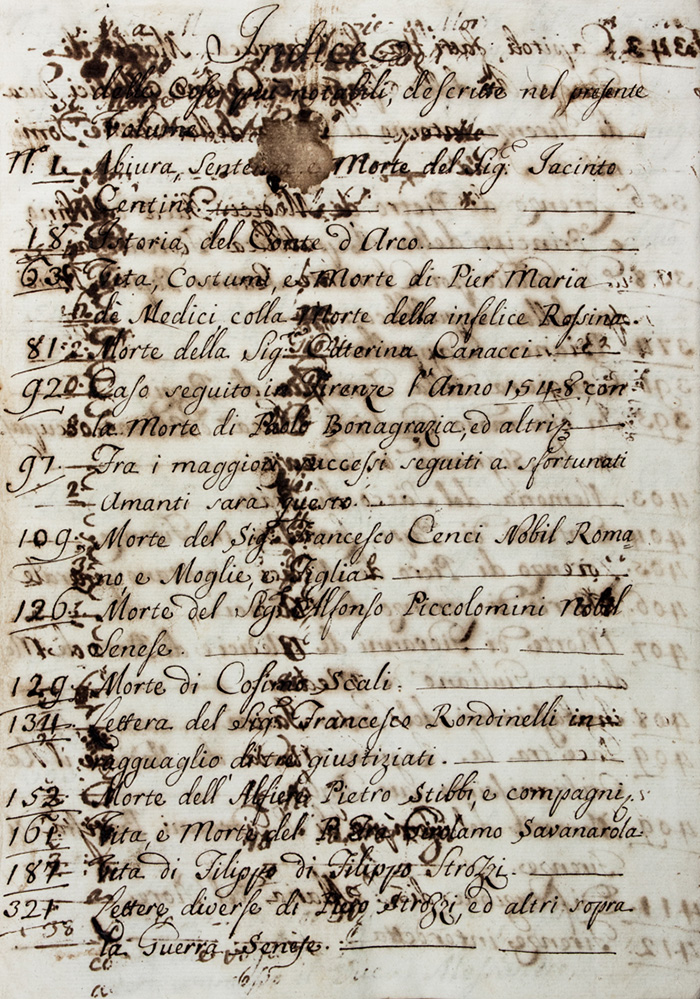 Indice
delle Cose più notabili, descritte nel presente
Volume
N.º 1. Abiura, Sentenza e Morte del Sig.r Jacinto
Centini
18. Istoria del Conte d'Arco.
63. Vita, Costumi, e Morte di Pier Maria
de Medici colla Morte della infelice Rosina.
81. Morte della Sig.ra Caterina Canacci.
92. Caso seguito in Firenze l'Anno 1548. con
la Morte di Paolo Bonagrazia, ed altri
97. Fra i maggiori successi seguiti a sfortunati
Amanti sarà questo.
109. Morte del Sig.r Francesco Cenci Nobil Roma=
no, e Moglie, e Figlia
126. Morte del Sig.r Alfonso Piccolomini Nobil
Senese.
129. Morte di Cosimo Scali.
134. Lettera del Sig.r Francesco Rondinelli in
ragguaglio di tre giustiziati.
152. Morte dell'Alfiere Pietro Stibbi, e compagni.
161. Vita, e Morte del P. Fra Girolamo Savanarola
187. Vita di Filippo di Filippo Strozzi.
321. Lettere diverse di Piero Strozzi, ed altri sopra
la Guerra Senese.